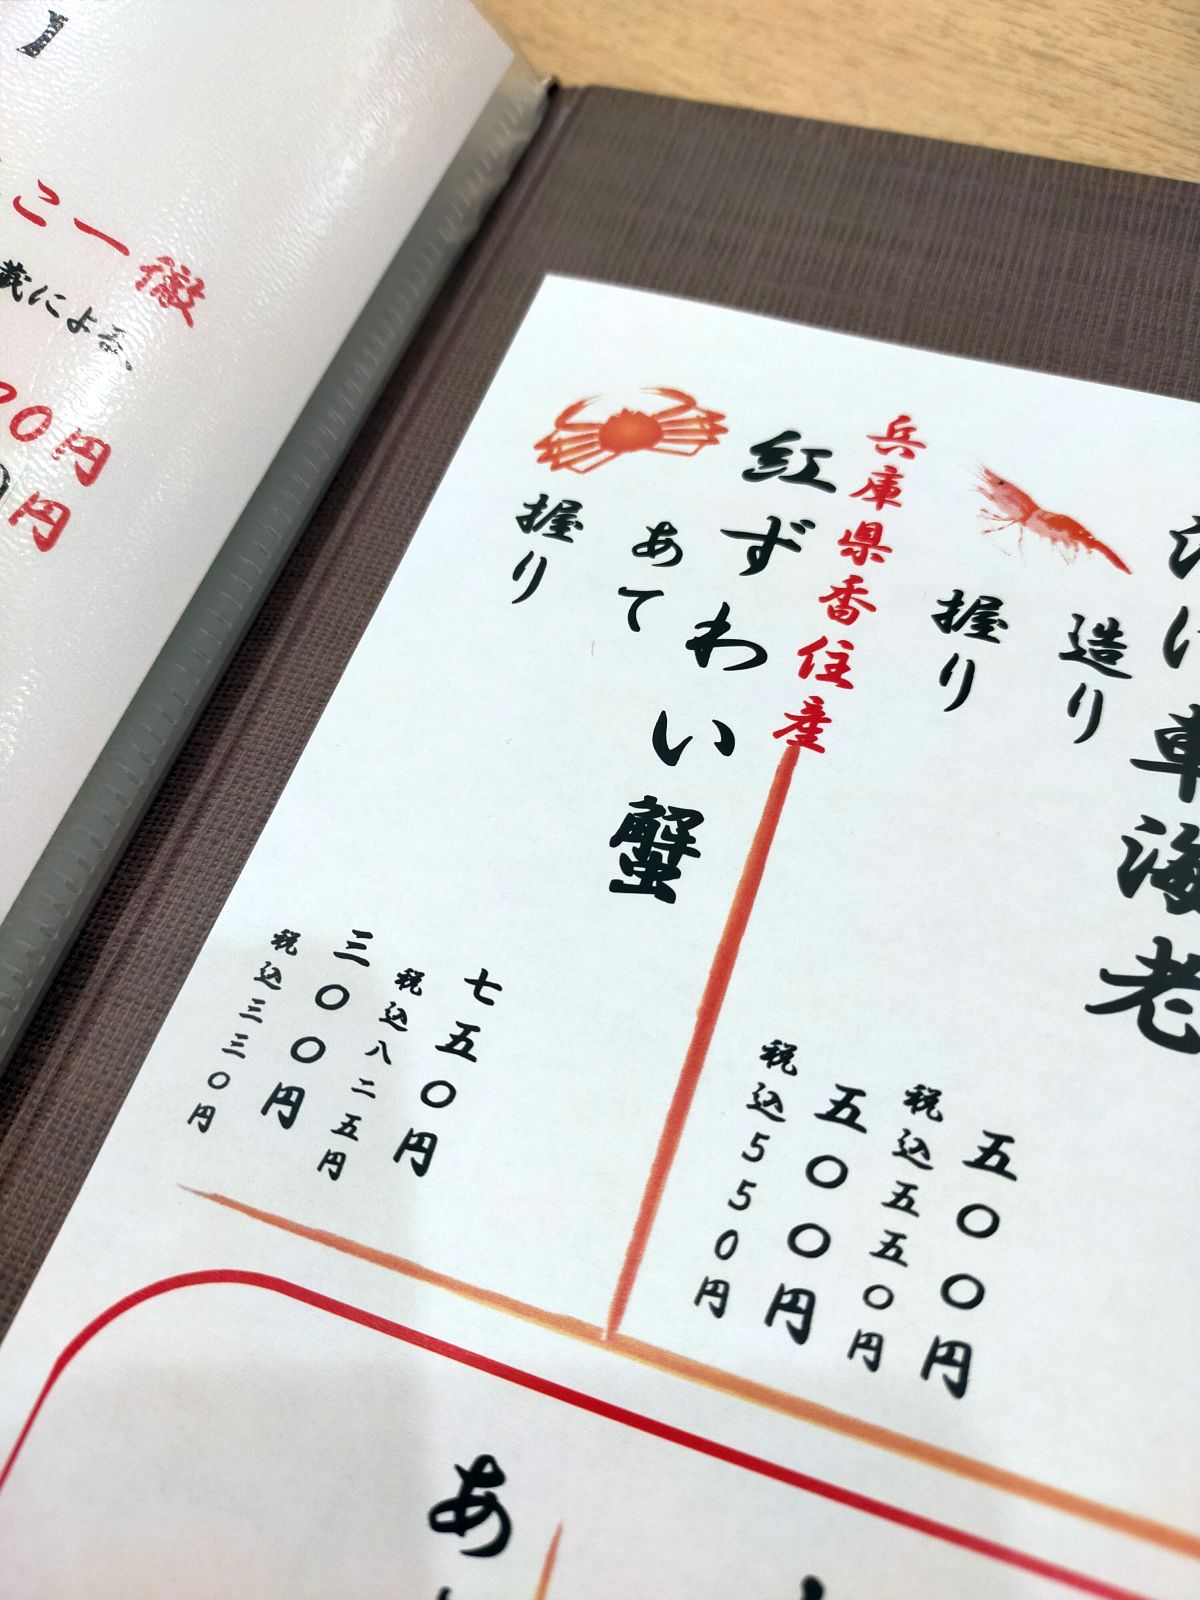 車海老
造り
五〇〇円
税込五五〇円
握り
五〇〇円
税込550円
兵庫県香住産
紅ずわい蟹
あて
七五〇円
税込八二五円
握り
三〇〇円
税込三三〇円
あ
】
こ一徹
蔵による、
70円
円